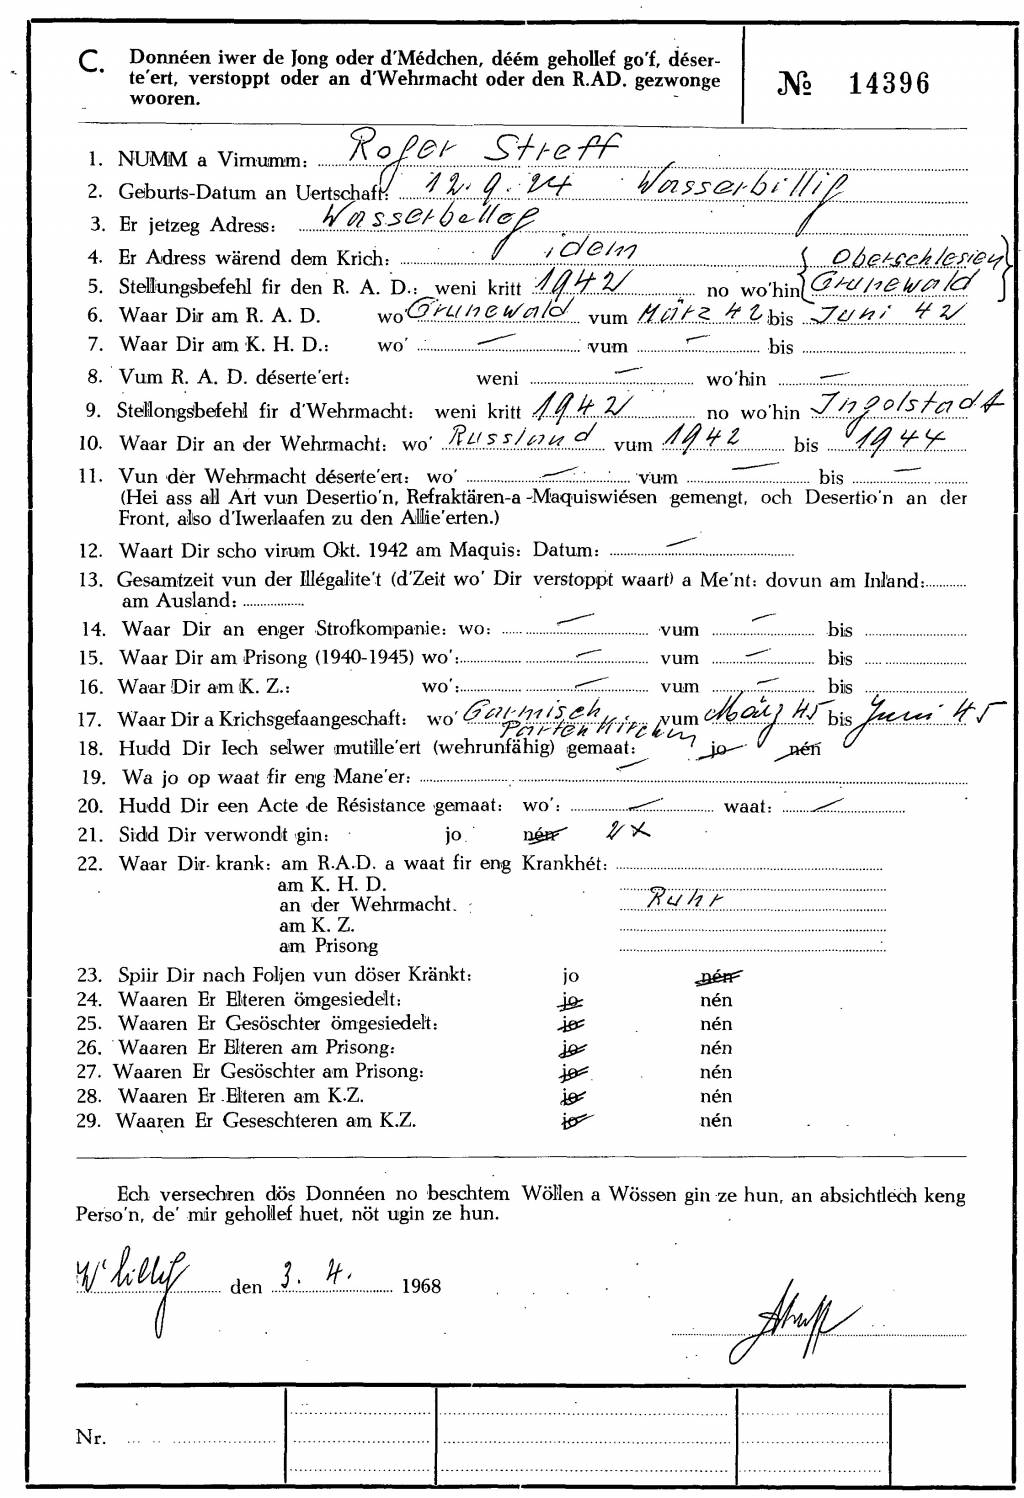 C. Donnéen iwer de Jong oder d'Médchen, déém gehollef go'f, déser-
te'ert, verstoppt oder an d'Wehrmacht oder den R.AD. gezwonge
wooren.
№ 14396
1. NUMM a Virnumm: Roger Streff
2. Geburts-Datum an Uertschaft: 12.9.24 Wasserbillig
3. Er jetzeg Adress: Wasserbelleg
4. Er Adress wärend dem Krich: idem
5. Stellungsbefehl fir den R. A. D.: weni kritt 1942 no wo'hin { Oberschlesien Grunewald }
6. Waar Dir am R. A. D. wo' Grunewald vum März 42 bis Juni 42
7. Waar Dir am K. H. D.: wo' — vum — bis
8. Vum R. A. D. déserte'ert: weni — wo'hin —
9. Stellongsbefehl fir d'Wehrmacht: weni kritt 1942 no wo'hin Ingolstadt
10. Waar Dir an der Wehrmacht: wo' Russland vum 1942 bis 1944
11. Vun der Wehrmacht déserte'ert: wo' — vum — bis —
(Hei ass all Art vun Desertio'n, Refraktären-a -Maquiswiésen gemengt, och Desertio'n an der
Front, also d'Iwerlaafen zu den Allie'erten.)
12. Waart Dir scho virum Okt. 1942 am Maquis: Datum: —
13. Gesamtzeit vun der Illégalite't (d'Zeit wo' Dir verstoppt waart) a Me'nt: dovun am Inland:
am Ausland:
14. Waar Dir an enger Strofkompanie: wo: — vum — bis
15. Waar Dir am Prisong (1940-1945) wo': — vum — bis
16. Waar Dir am K. Z.: wo': — vum — bis
17. Waar Dir a Krichsgefaangeschaft: wo' Garmisch Partenkirchen vum März 45 bis Juni 45
18. Hudd Dir Iech selwer mutille'ert (wehrunfähig) gemaat: jo nén
19. Wa jo op waat fir eng Mane'er: —
20. Hudd Dir een Acte de Résistance gemaat: wo': — waat: —
21. Sidd Dir verwondt gin: jo nén 2 x
22. Waar Dir krank: am R.A.D. a waat fir eng Krankhét:
am K. H. D.
an der Wehrmacht. Ruhr
am K. Z.
am Prisong
23. Spiir Dir nach Foljen vun döser Kränkt: jo nén
24. Waaren Er Elteren ömgesiedelt: jo nén
25. Waaren Er Gesöschter ömgesiedelt: jo nén
26. Waaren Er Elteren am Prisong: jo nén
27. Waaren Er Gesöschter am Prisong: jo nén
28. Waaren Er Elteren am K.Z. jo nén
29. Waaren Er Geseschteren am K.Z. jo nén
Ech versechren dös Donnéen no beschtem Wöllen a Wössen gin ze hun, an absichtlech keng
Perso'n, de' mir gehollef huet, nöt ugin ze hun.
W'billig den 3. 4. 1968
Nr.